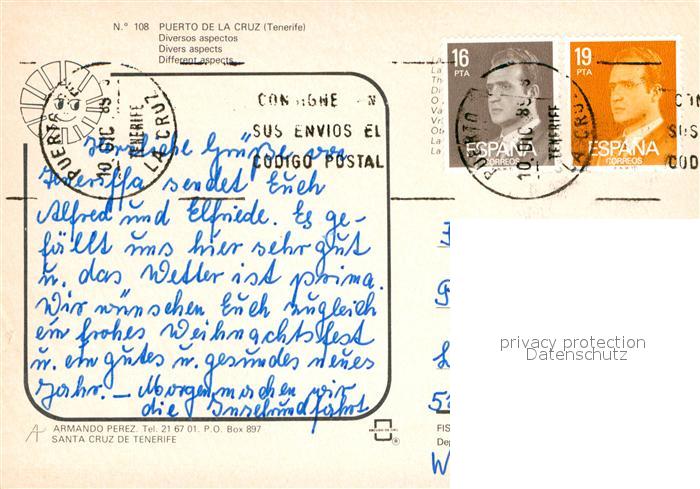 N.º 108 PUERTO DE LA CRUZ (Tenerife)
Diversos aspectos
Divers aspects
Different aspects
16
PTA
ESPAÑA
CORREOS
19
PTA
ESPAÑA
CORREOS
PUERTO DE LA CRUZ
10 DIC 83
TENERIFE
CONSIGNE EN
SUS ENVIOS EL
CODIGO POSTAL
PUERTO
LA CRUZ
10 DIC 83
TENERIFE
SUS
COD
Herzliche Grüße von
Teneriffa sendet Euch
Alfred und Elfriede. Es ge-
fällt uns hier sehr gut
u. das Wetter ist prima.
Wir wünschen Euch zugleich
ein frohes Weihnachtsfest
u. ein gutes u. gesundes neues
Jahr. — Morgen machen wir
die Inselrundfahrt
privacy protection
Datenschutz
ARMANDO PEREZ. Tel. 21 67 01. P.O. Box 897
SANTA CRUZ DE TENERIFE
FIS
Dep
W